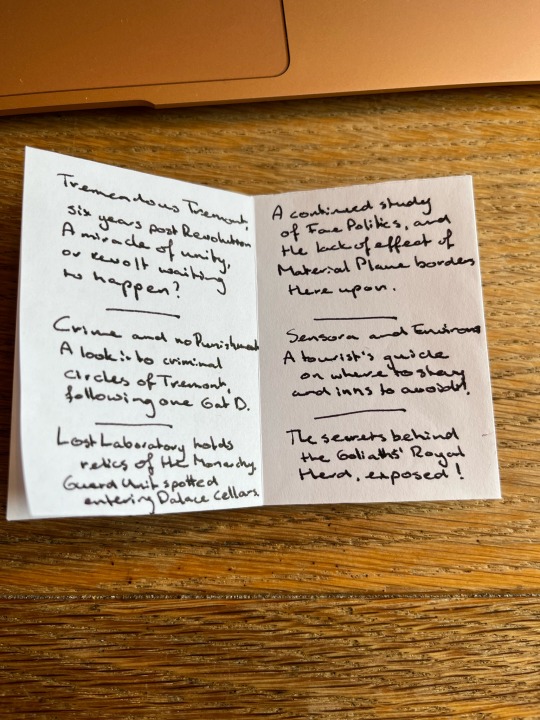 Tremendous Tremont,
six years post Revolution
A miracle of unity,
or revolt waiting
to happen?
Crime and no Punishment
A look into criminal
circles of Tremont,
following one Gat D.
Lost Laboratory holds
relics of the Monarchy.
Guard Unit spotted
entering Palace Cellars.
A continued study
of Fae Politics, and
the lack of effect of
Material Plane borders
there upon.
Sensora and Environs
A tourist's guide
on where to stay
and inns to avoid!
The secrets behind
the Goliaths' Royal
Herd, exposed!